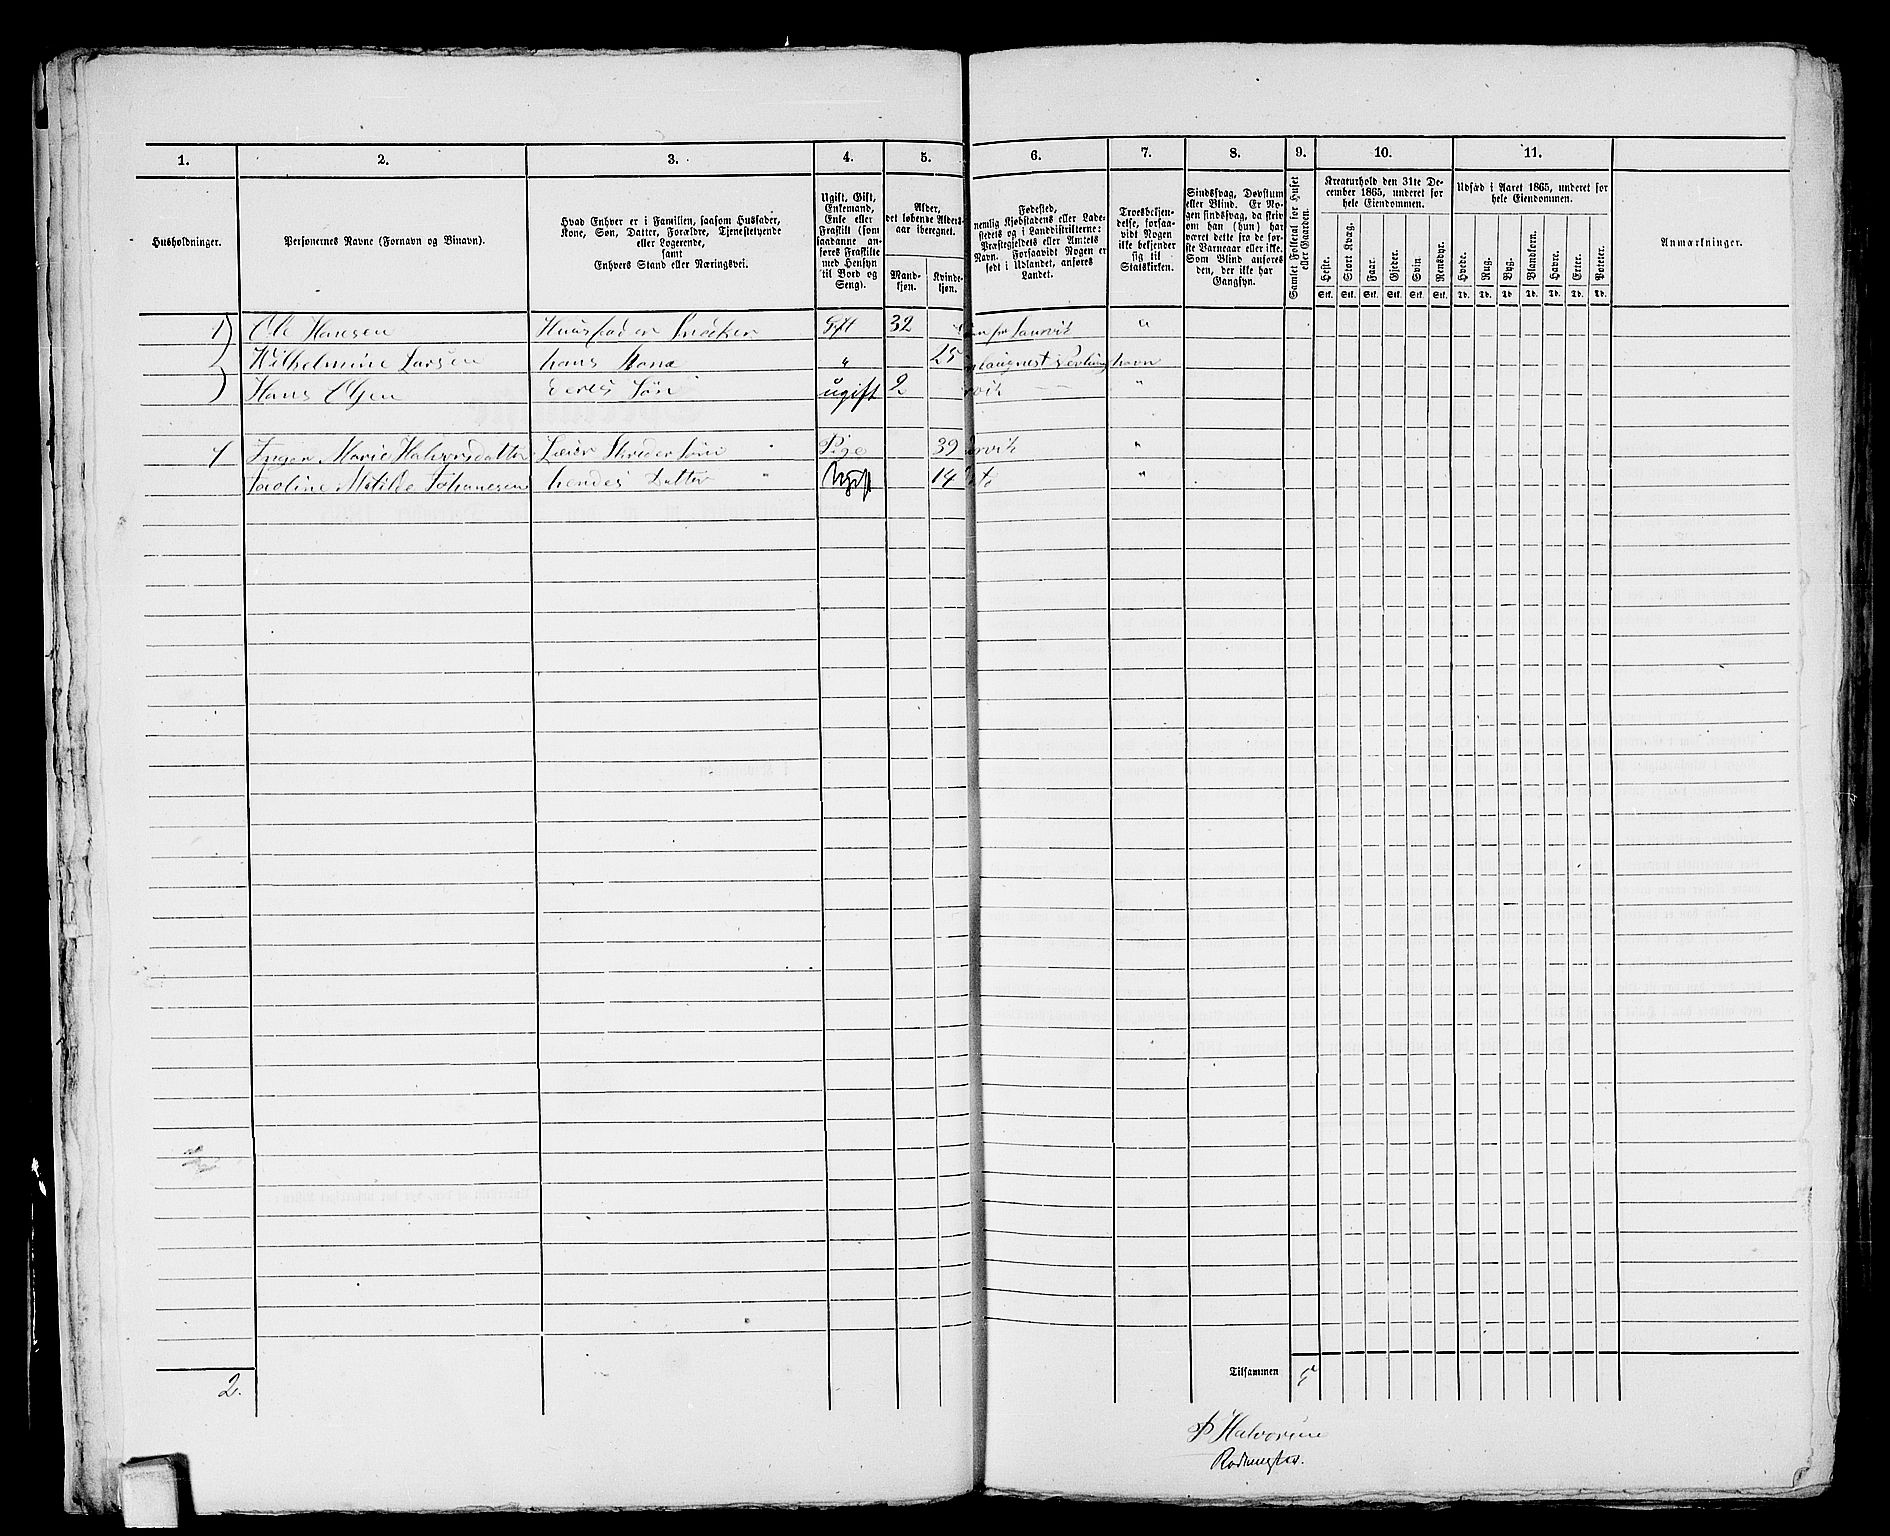 1. 2. 3. 4. 5. 6. 7. 8. 9. 10. 11.
Husholdninger.
Personernes Navne (Fornavn og Binavn).
Hvad Enhver er i Familien, saasom Husfader,
Kone, Søn, Datter, Forældre, Tjenestetyende
eller Logerende,
samt
Enhvers Stand eller Næringsvei.
Ugift, Gift,
Enkemand,
Enke eller
Fraskilt (som
saadanne an-
føres Fraskilte
med Hensyn
til Bord og
Seng).
Alder,
det løbende Alders-
aar iberegnet.
Mand-
kjøn.
Kvinde-
kjøn.
Fødested,
nemlig Kjøbstadens eller Lade-
stedets og i Landdistrikterne:
Præstegjeldets eller Amtets
Navn. Forsaavidt Nogen er
født i Udlandet, anføres
Landet.
Troesbekjen-
delse, forsaa-
vidt Nogen
ikke bekjender
sig til
Statskirken.
Sindssvag, Døvstum
eller Blind. Er No-
gen sindssvag, da skriv
om han (hun) har
været dette fra de før-
ste Barneaar eller ikke.
Som Blind anføres
den, der ikke har
Gangsyn.
Samlet Folketal for Huset
eller Gaarden.
Kreaturhold den 31te De-
cember 1865, underet for
hele Eiendommen.
Heste. Stort Kvæg. Faar. Gjeder. Svin Rensdyr.
Stk. Stk. Stk. Stk. Stk. Stk.
Udsæd i Aaret 1865, underet for
hele Eiendommen.
Hvede. Rug. Byg. Blandkorn. Havre. Erter. Poteter.
Td. Td. Td. Td. Td. Td. Td.
Anmærkninger.
1 Ole Hansen Huusfader Snedker Gift 32 "
Wilhelmine Larsen hans Kone " 25 havn
Hans Olsen deres Søn ugift 2 "
1 Inger Marie Halvorsdatter Pige 39 "
Karoline Matilde Johanesen hendes Datter Ugift 14 "
2.
Tilsammen 5
P Halvorsen